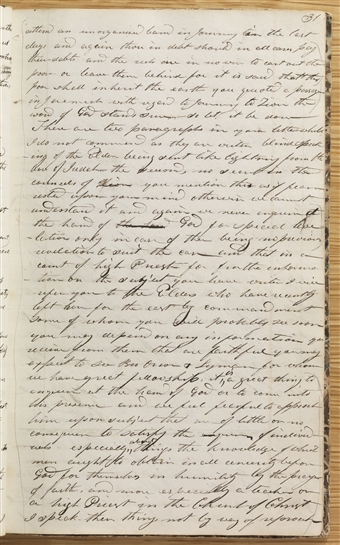 31
attend an unorganized band in journying in the last
days and again those in debt should in all cases pay
their debts and the rich are in no wise to cast out the
poor or leave them behind for it is said that the
poor shall inherit the earth you quote a passage
in Jeremiah with regard to journying to Zion the
word of God stands sure so let it be done
There are two paragraphs in your letter which
I do not commend as they are written blind speak
ing of the Elders being sent like lightning from the
bow of Judah the second, no secrets in the
counsels of Zion you mention these as if fear
rested upon your mind otherwise we cannot
understand it and again we never enquire at
the hand of God for special reve
lation only in case of their being no previous
revelation to suit the case and that in a
council of high Priests for further informa
tion on the subject you have written I will
refer you to the Elders who have recently
left here for the east by commandment
some of whom you will probably see soon
you may depend on any information you
receive from them that are faithful you may
expect to see Bro Orson & Lyman for whom
we have great fellowship it is a great thing to
enquire at the hand of God or to come into
his presence and we feel fearful to approach
him upon subjects that are of little or no
consequence to satisfy the queries of individ
uals especially about things the knowledge of which
men ought to obtain in all cencerity before
God for themselves in humility by the prayer
of faith, and more especially a teacher or
a high Priest in the Church of Christ
I speak these things not by way of reproach